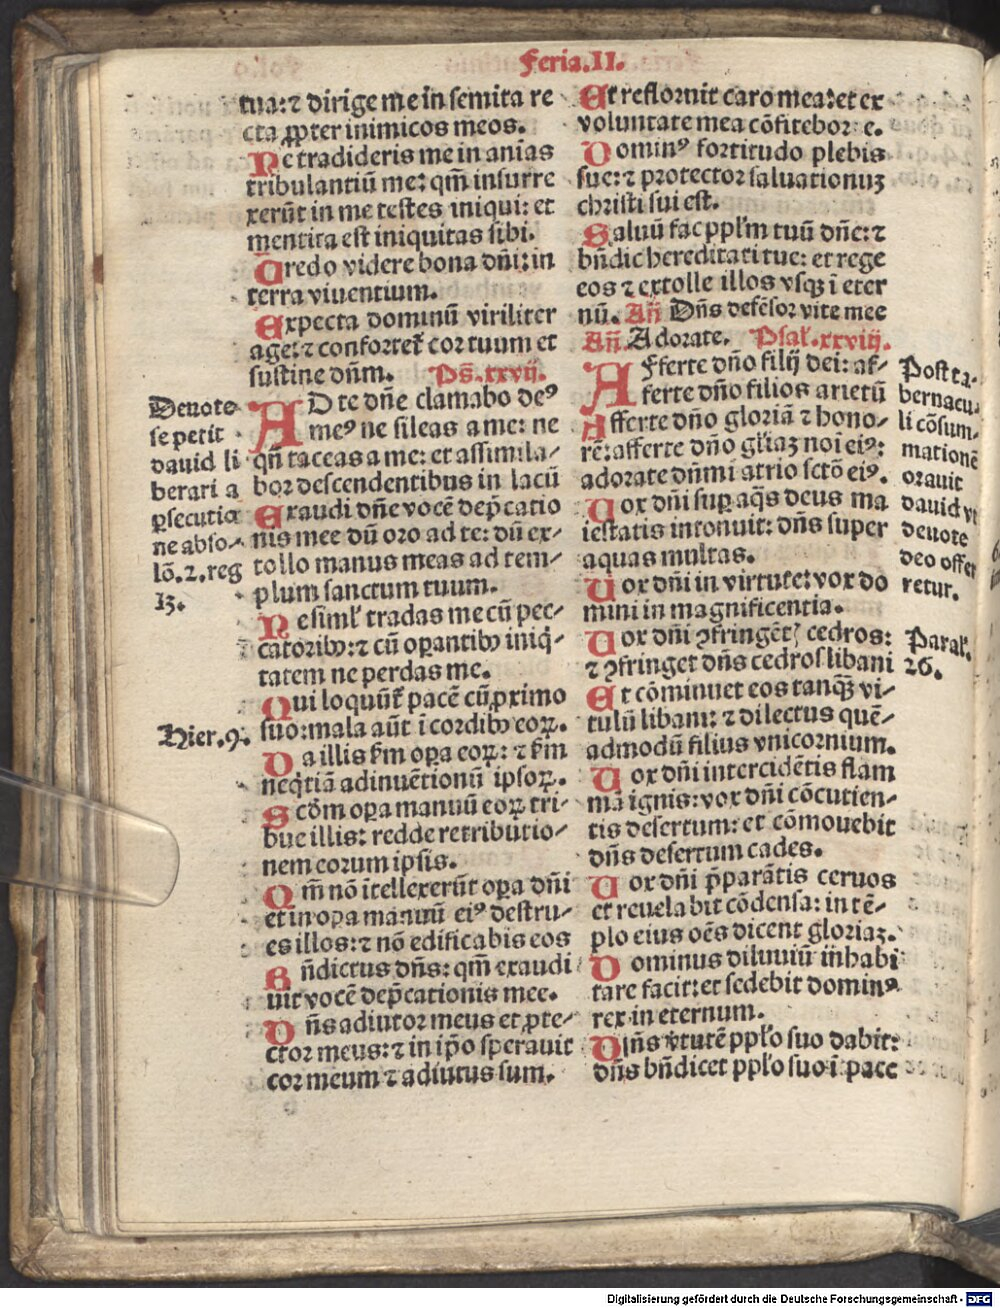 Feria.II.
tua: ⁊ dirige me in semita re
cta ꝓpter inimicos meos.
Ne tradideris me in aniãs
tribulantiũ me: qm̃ insurre
xerũt in me testes iniqui: et
mentita est iniquitas sibi.
Credo videre bona dñi: in
terra viuentium.
Expecta dominũ viriliter
age: ⁊ confortet᷑ cor tuum et
sustine dñm. Ps̃.xxvij.
AD te dñe clamabo deꝰ
meꝰ ne sileas a me: ne
qñ taceas a me: et assimila⸗
bor descendentibus in lacũ
Exaudi dñe vocẽ dep̃catio
nis mee dũ oro ad te: dũ ex⸗
tollo manus meas ad tem⸗
plum sanctum tuum.
Ne siml᷑ tradas me cũ pec⸗
catoribꝰ: ⁊ cũ oꝑantibꝰ iniq̃⸗
tatem ne perdas me.
Qui loquũt᷑ pacẽ cũ ꝓximo
suo: mala aũt ĩ cordibꝰ eoꝝ.
Da illis s̃m oꝑa eoꝝ: ⁊ s̃m
neq̃tiã adinuẽtionũ ipsoꝝ.
Scd̃m oꝑa manuũ eoꝝ tri⸗
bue illis: redde retributio⸗
nem eorum ipsis.
Qm̃ nõ ĩtellexerũt oꝑa dñi
et in oꝑa manuũ eiꝰ destru⸗
es illos: ⁊ nõ edificabis eos
Bñdictus dñs: qm̃ exaudi
uit vocẽ dep̃cationis mee.
Dñs adiutor meus et ꝓte⸗
ctor meus: ⁊ in ip̃o sperauit
cor meum ⁊ adiutus sum.
Deuote
se petit
dauid li
berari a
ꝑsecutio
ne abso⸗
lõ.2.reg
13.
Hier.9.
Et refloruit caro mea: et ex
voluntate mea cõfitebor e.
Dominꝰ fortitudo plebis
sue: ⁊ protector saluationuꝫ
christi sui est.
Saluũ fac ppl᷑m tuũ dñe: ⁊
bñdic hereditati tue: et rege
eos ⁊ extolle illos vsqꝫ ĩ eter
nũ. Añ Dñs defẽsor vite mee
Añ. Adorate. Psal᷑.xxviij.
AFferte dño filij dei: af⸗
ferte dño filios arietũ
Afferte dño gloriã ⁊ hono⸗
rẽ: afferte dño gl᷑iaꝫ noĩ eiꝰ:
adorate dñm ĩ atrio sctõ eiꝰ.
Vox dñi suꝑ aq̃s deus ma
iestatis intonuit: dñs super
aquas multas.
Vox dñi in virtute: vox do
mini in magnificentia.
Vox dñi ꝯfringẽt᷑ cedros:
⁊ ꝯfringet dñs cedros libani
Et cõminuet eos tanqꝫ vi⸗
tulũ libani: ⁊ dilectus quẽ⸗
admodũ filius vnicornium.
Vox dñi intercidẽtis flam
mã ignis: vox dñi cõcutien⸗
tis desertum: et cõmouebit
dñs desertum cades.
Vox dñi p̃parãtis ceruos
et reuelabit cõdensa: in tẽ⸗
plo eius oẽs dicent gloriaꝫ.
Dominus diluuiũ inhabi
tare facit: et sedebit dominꝰ
rex in eternum.
Dñs v̾tutẽ ppl᷑o suo dabit:
dñs bñdicet ppl᷑o suo ĩ pace
Post ta⸗
bernacu⸗
li cõsum⸗
mationẽ
orauit
dauid vt
deuote
deo offer
retur.
Paral᷑.
26.
Digitalisierung gefördert durch die Deutsche Forschungsgemeinschaft - DFG